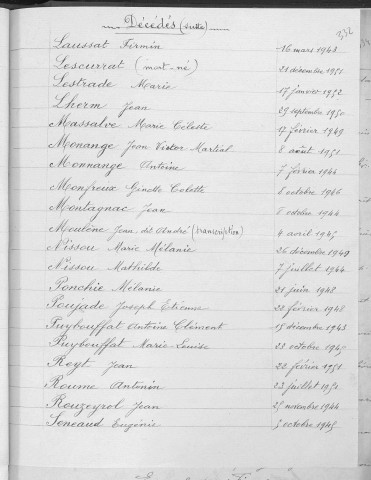 Décédés (suite)
332
Laussat Firmin 16 mars 1948
Lescurrat (mort-né) 21 décembre 1951
Lestrade Marie 17 janvier 1952
Lherm Jean 29 septembre 1950
Massalve Marie Céleste 17 février 1949
Monange Jean Victor Martial 8 août 1951
Monnange Antoine 7 février 1944
Monfreux Ginette Colette 8 octobre 1946
Montagnac Jean 8 octobre 1944
Moulène Jean dit André (transcription) 4 avril 1945
Nissou Marie Mélanie 26 décembre 1949
Nissou Mathilde 7 juillet 1944
Ponchie Mélanie 21 juin 1948
Poujade Joseph Etienne 20 février 1948
Puybouffat Antoine Clément 15 décembre 1943
Puybouffat Marie-Louise 23 octobre 1945
Reyt Jean 22 février 1951
Roume Antonin 23 juillet 1951
Rouzeyrol Jean 25 novembre 1944
Seneaud Eugénie 5 octobre 1945